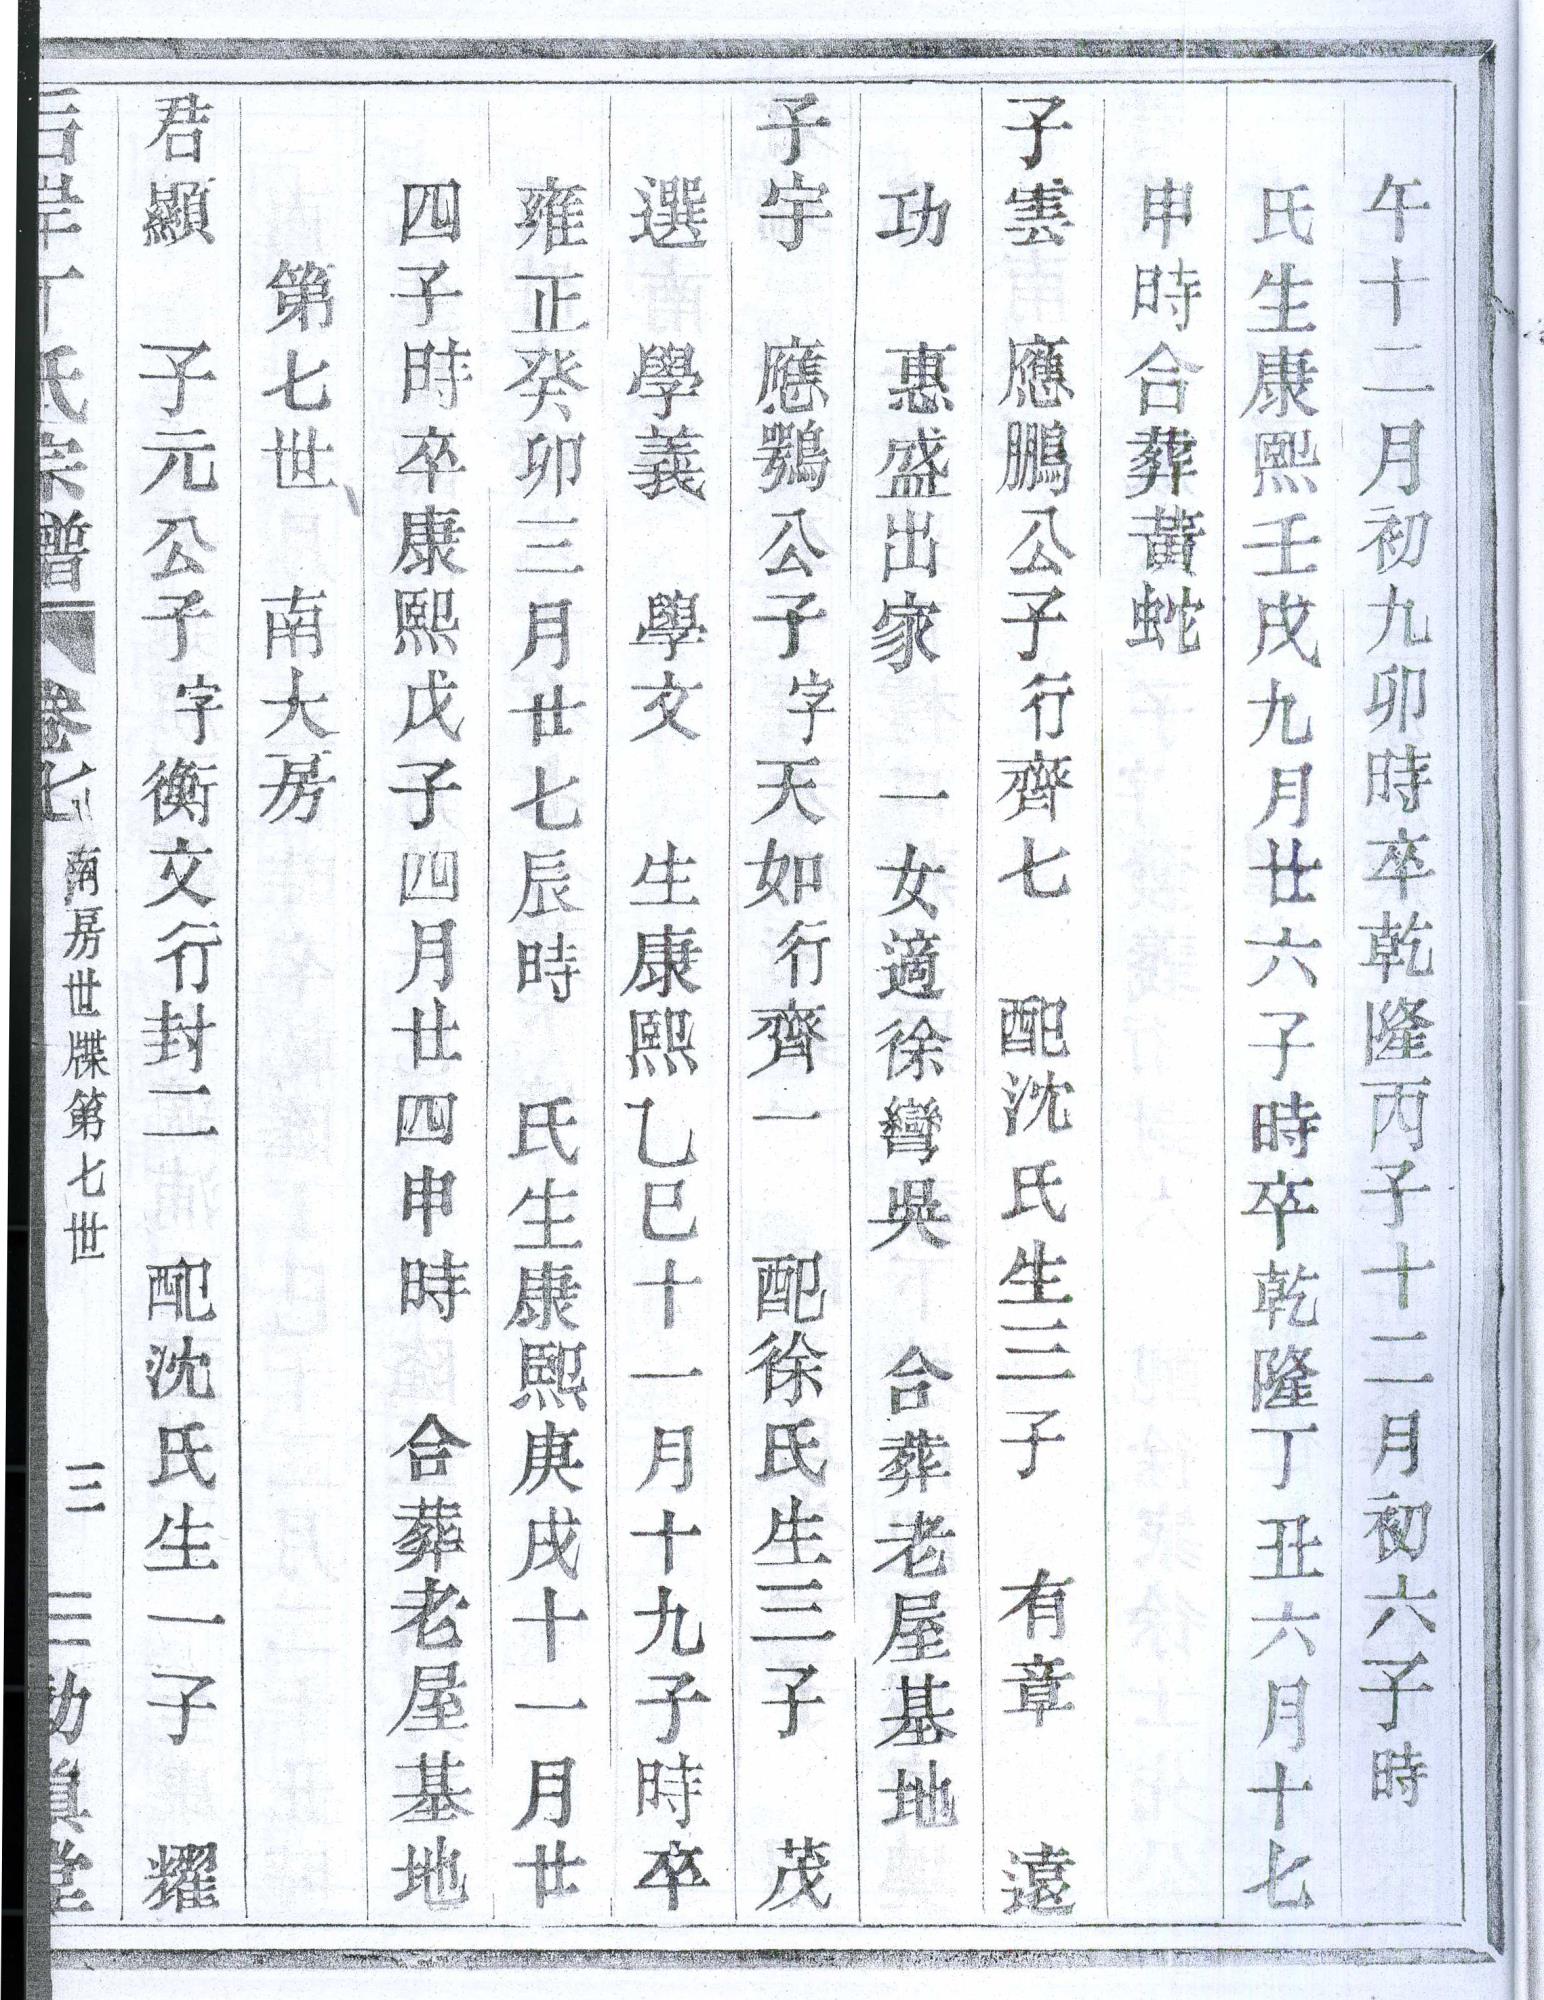 午十二月初九卯時卒乾隆丙子十二月初六子時
氏生康熙壬戌九月廿六子時卒乾隆丁丑六月十七
申時合葬黃蛇
子雲　應鵬公子行齊七　配沈氏生三子　有章　遠
功　惠盛出家　一女適徐彎吳　合葬老屋基地
子宇　應鶚公子字天如行齊一　配徐氏生三子　茂
選　學義　學文　生康熙乙巳十一月十九子時卒
雍正癸卯三月廿七辰時　氏生康熙庚戌十一月廿
四子時卒康熙戊子四月廿四申時　合葬老屋基地
第七世　南大房
君顯　子元公子字衡文行封二　配沈氏生一子　耀
后岸丁氏宗譜　卷七　南房世牒第七世　三　三　勅慎堂